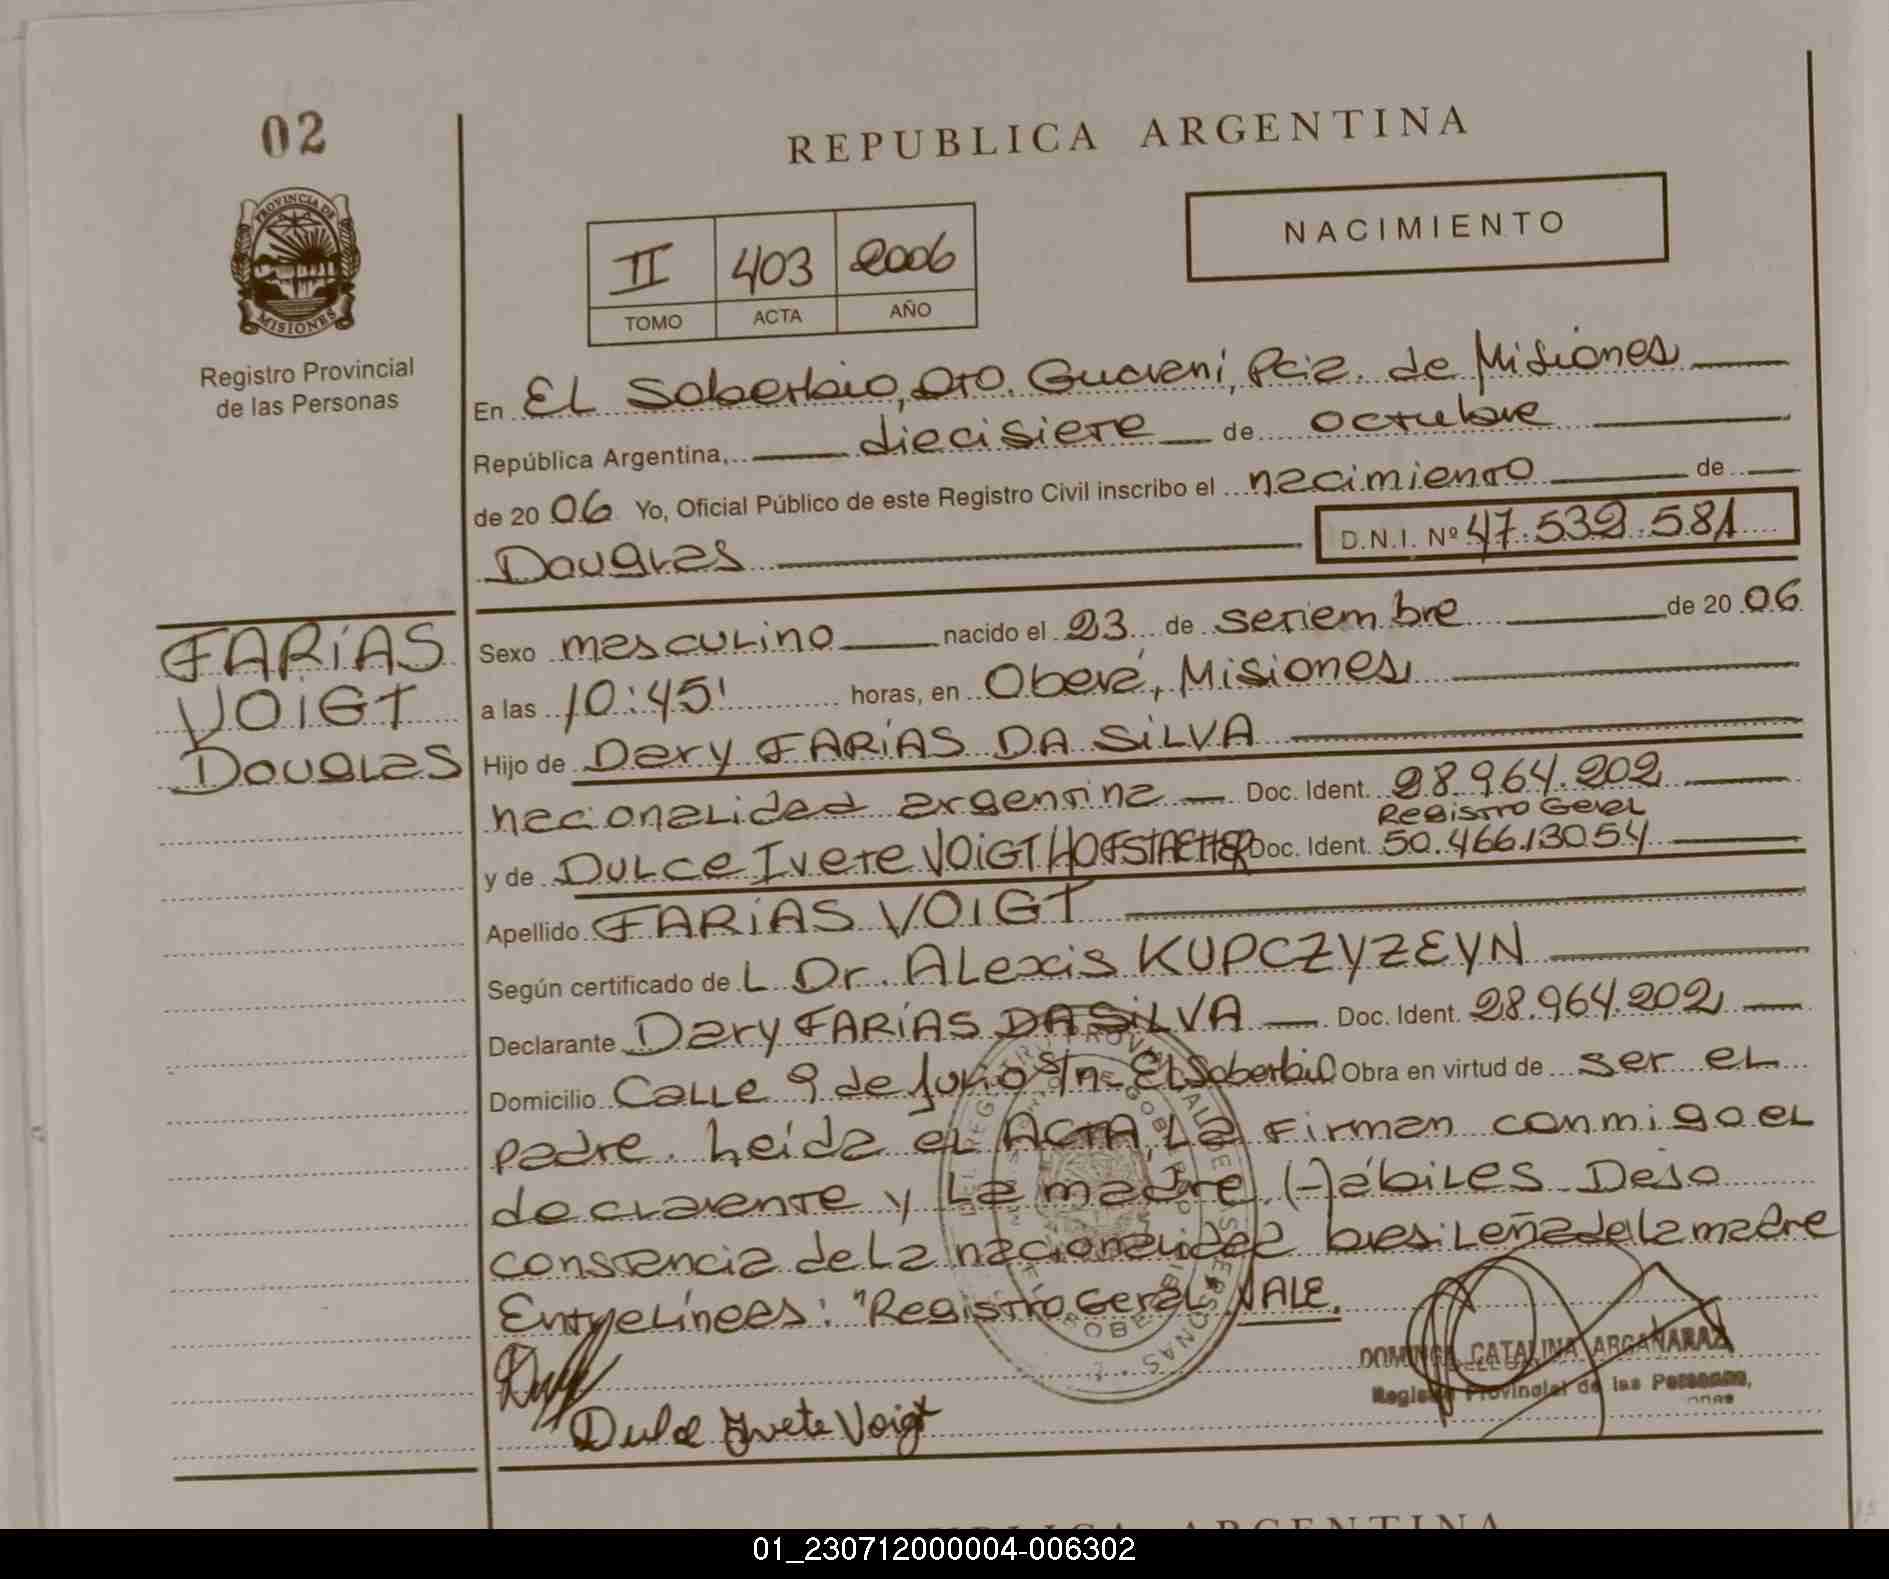 02
REPUBLICA ARGENTINA
PROVINCIA DE
MISIONES
Registro Provincial
de las Personas
NACIMIENTO
II 403 2006
TOMO ACTA AÑO
En El Soberbio, Dto. Guarani, Pcia. de Misiones
República Argentina, diecisiete de octubre
de 2006 Yo, Oficial Público de este Registro Civil inscribo el nacimiento de
Douglas
D.N.I. Nº 47.532.581
FARíAS
VOIGT
Douglas
Sexo masculino nacido el 23 de setiembre de 2006
a las 10:45' horas, en Oberá, Misiones
Hijo de Dary FARíAS DA SiLVA
nacionalidad argentina Doc. Ident. 28.964.202
Registro Geral
y de Dulce Ivete VOIGT HOFSTAETTER Doc. Ident. 50.466.13054
Apellido FARíAS VOIGT
Según certificado de L Dr. Alexis KUPCZYZEYN
Declarante Dary FARíAS DA SiLVA Doc. Ident. 28.964.202
Domicilio Calle 9 de Julio s/n- El Soberbio Obra en virtud de ser el
padre. Leída el ACTA, La Firman conmigo el
declarante y La madre (-) ábiles Dejo
constancia de La nacionalidad brasileña de la madre
Entrelíneas: "Registro Geral VALE.
Dulce Ivete Voigt
DOMINGA CATALINA ARGAÑARAZ
Registro Provincial de las Personas,
REPUBLICA ARGENTINA
01_230712000004-006302